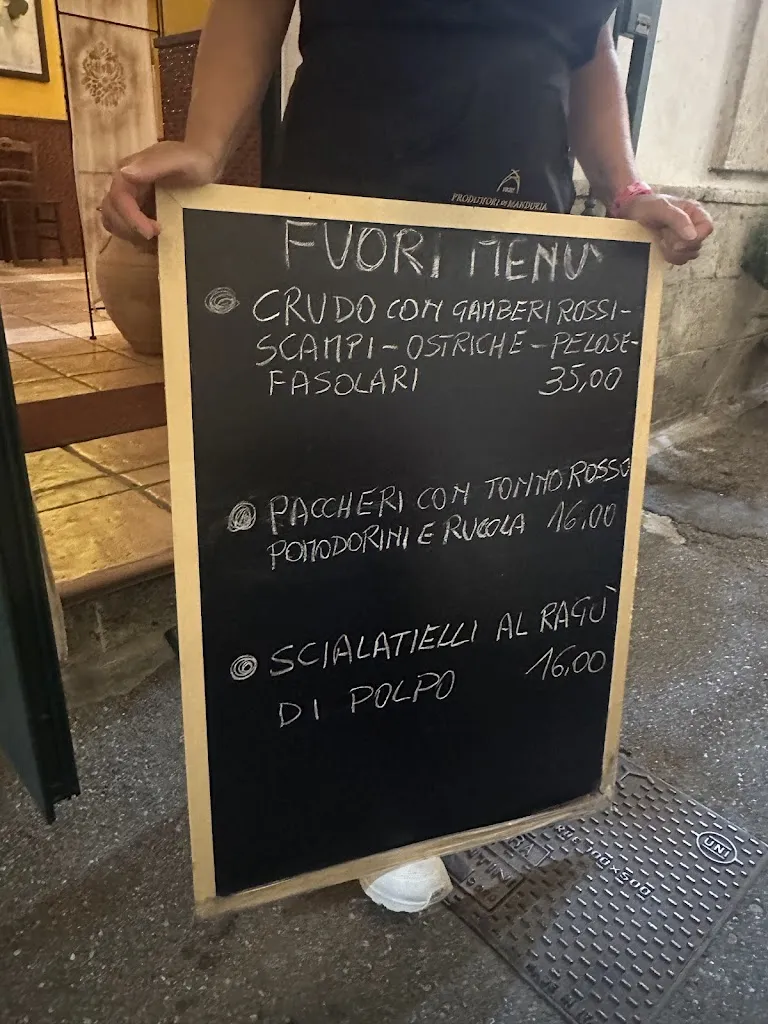 PRODUTTORI DI MANDURIA
FUORI MENU'
CRUDO CON GAMBERI ROSSI-
SCAMPI-OSTRICHE-PELOSE-
FASOLARI 35,00
PACCHERI CON TONNO ROSSO
POMODORINI E RUCOLA 16,00
SCIALATIELLI AL RAGÙ
DI POLPO 16,00
UNI
700x500